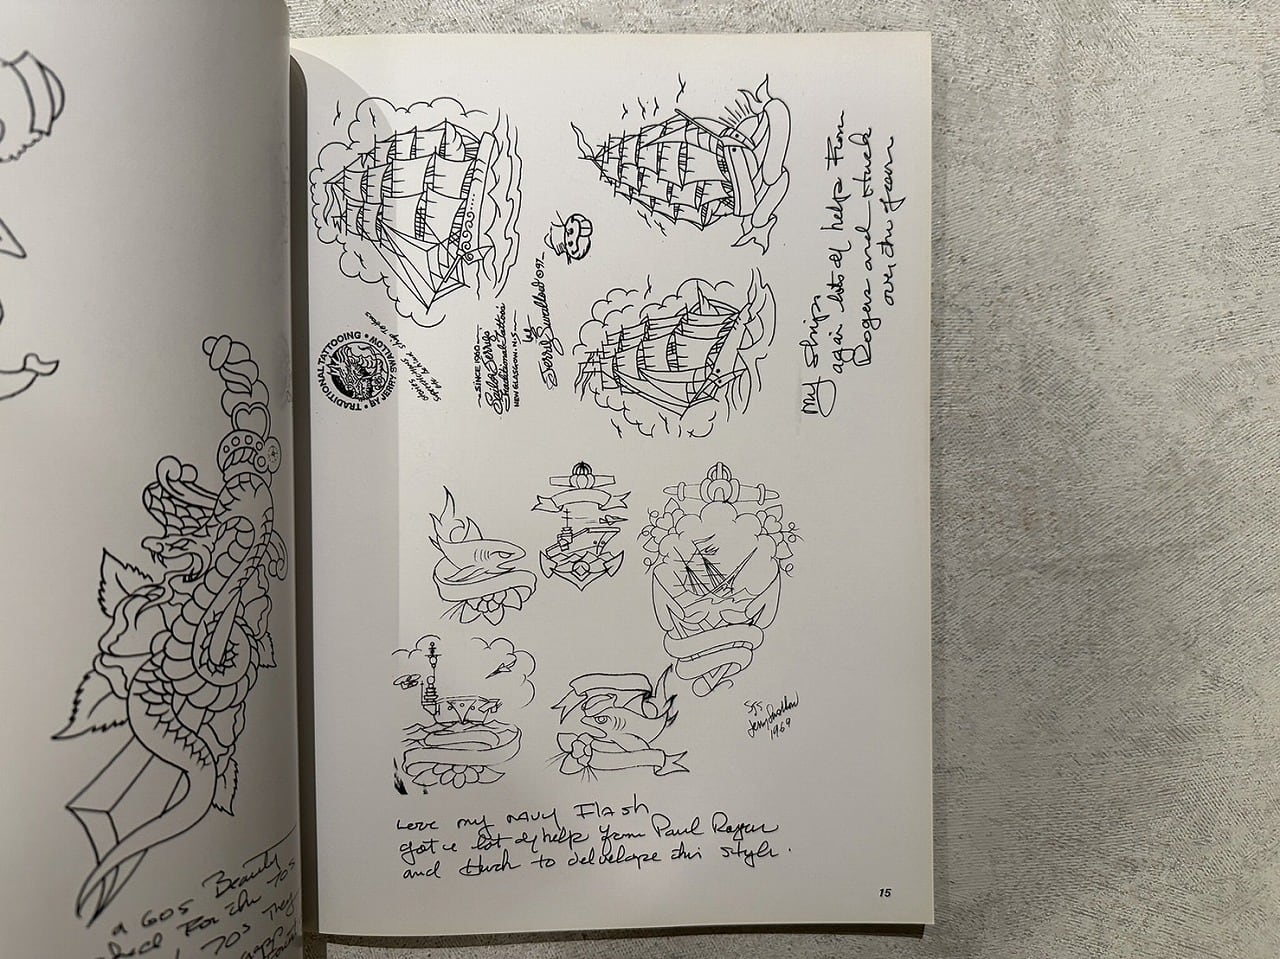 My Ships
again lots of help From
Rogers and Huck
over the years
TRADITIONAL TATTOOING • BY JERRY SWALLOW •
SINCE 1960
Sailor Jerry's
Traditional Tattoos
NEW GLASGOW, N.S.
by
Jerry Swallow ©97
STS
Jerry Swallow
1969
Love my NAVY Flash
got a lot of help from Paul Rogers
and Huck to delvelope this style.
15
a 60s Beauty
For the 70s
70s They